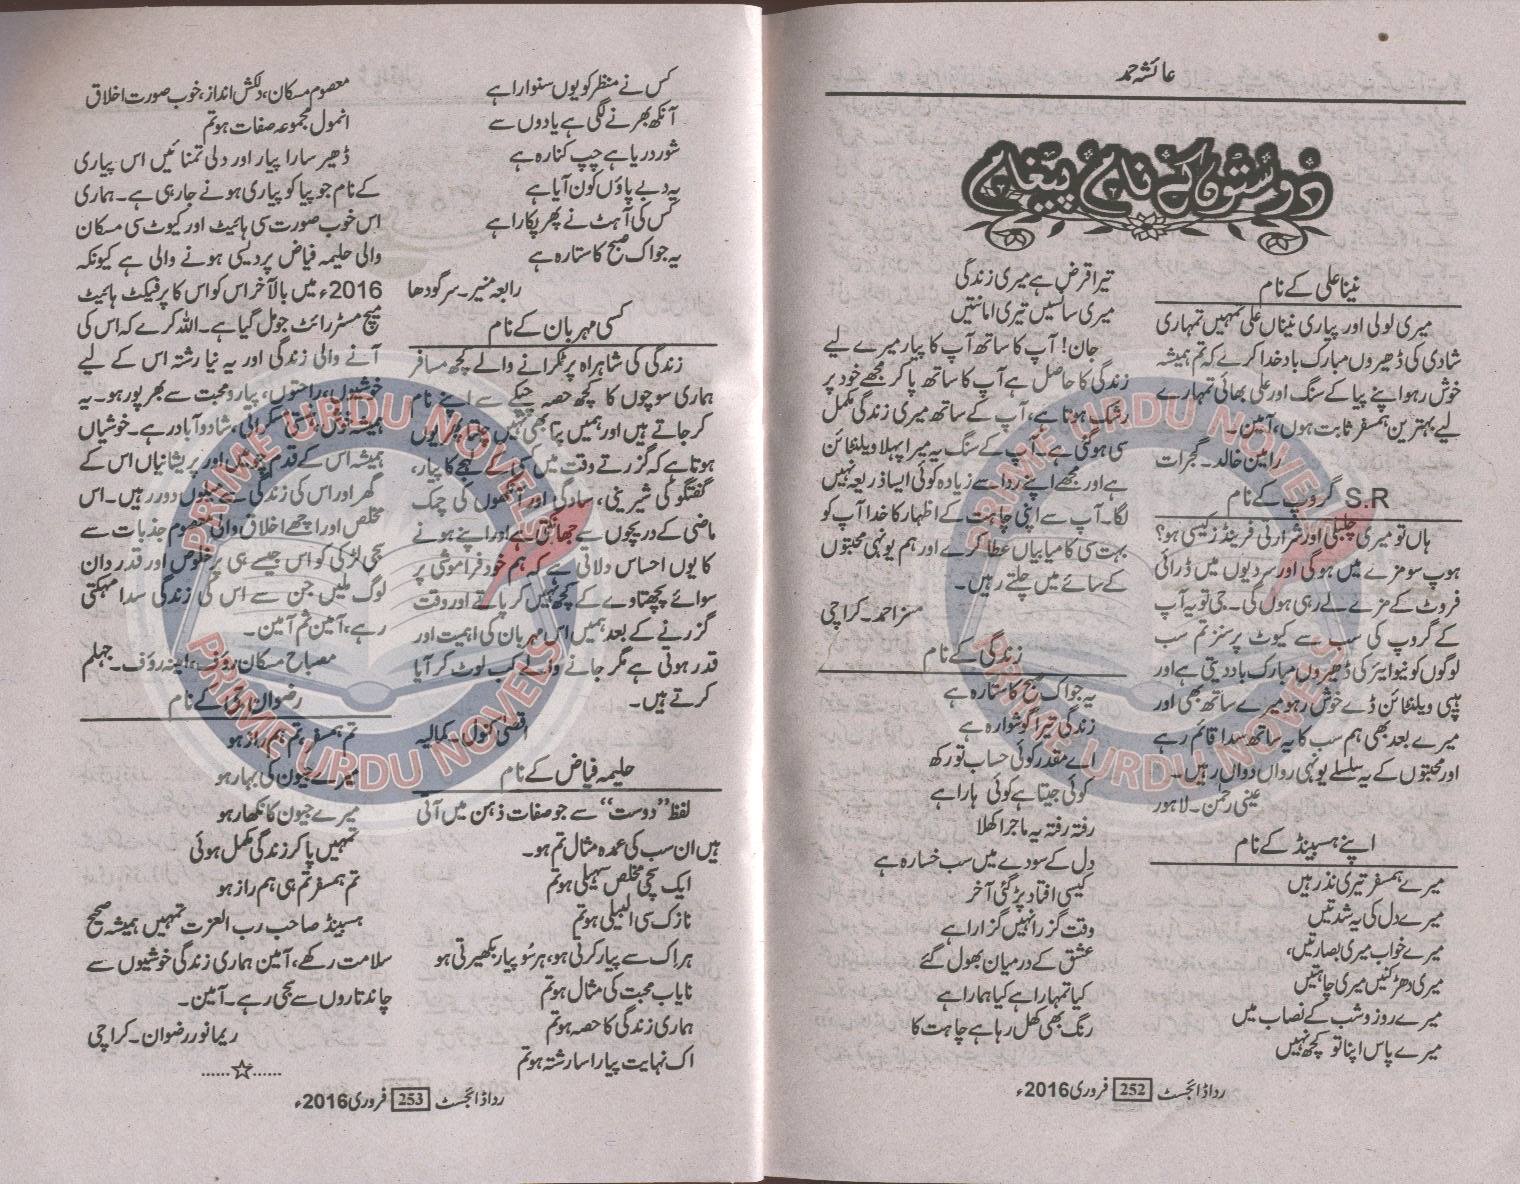 عائشہ حمد
دوستوں کے نام پیغام
نینا علی کے نام
میری لولی اور پیاری نیناں علی تمہیں تمہاری
شادی کی ڈھیروں مبارک باد خدا کرے کہ تم ہمیشہ
خوش رہو اپنے پیا کے سنگ اور علی بھائی تمہارے
لیے بہترین ہمسفر ثابت ہوں، آمین۔
رامین خالد۔ گجرات
S.R گروپ کے نام
ہاں تو میری چلبلی اور شرارتی فرینڈز کیسی ہو؟
ہوپ سو مزے میں ہوگی اور سردیوں میں ڈرائی
فروٹ کے مزے لے رہی ہوں گی۔ جی تو یہ آپ
کے گروپ کی سب سے کیوٹ پرسنز تم سب
لوگوں کو نیو ایئر کی ڈھیروں مبارک باد دیتی ہے اور
ہیپی ویلنٹائن ڈے خوش رہو میرے ساتھ بھی اور
میرے بعد بھی ہم سب کا یہ ساتھ سدا قائم رہے
اور محبتوں کے یہ سلسلے یونہی رواں دواں رہیں۔
عینی رحمٰن۔ لاہور
اپنے ہسبینڈ کے نام
میرے ہمسفر تیری نذر ہیں
میرے دل کی یہ شدتیں
میرے خواب میری بصارتیں،
میری دھڑکنیں میری چاہتیں
میرے روز و شب کے نصاب میں
میرے پاس اپنا تو کچھ نہیں
تیرا قرض ہے میری زندگی
میری سانسیں تیری امانتیں
جان! آپ کا ساتھ آپ کا پیار میرے لیے
زندگی کا حاصل ہے آپ کا ساتھ پا کر مجھے خود پر
رشک ہوتا ہے، آپ کے ساتھ میری زندگی مکمل
سی ہوگئی ہے۔ آپ کے سنگ یہ میرا پہلا ویلنٹائن
ہے اور مجھے اپنے ردا سے زیادہ کوئی ایسا ذریعہ نہیں
لگا۔ آپ سے اپنی چاہت کے اظہار کا خدا آپ کو
بہت سی کامیابیاں عطا کرے اور ہم یونہی محبتوں
کے سائے میں چلتے رہیں۔
مسز احمد۔ کراچی
زندگی کے نام
یہ جو اک صبح کا ستارہ ہے
زندگی تیرا گوشوارہ ہے
اے مقدر کوئی حساب تو رکھ
کوئی جیتا ہے کوئی ہارا ہے
رفتہ رفتہ یہ ماجرا کھلا
دل کے سودے میں سب خسارہ ہے
کیسی افتاد پڑ گئی آخر
وقت گزرا نہیں گزارا ہے
عشق کے درمیان بھول گئے
کیا تمہارا ہے کیا ہمارا ہے
رنگ بھی کھل رہا ہے چاہت کا
ردا ڈائجسٹ 252 فروری 2016ء
کس نے منظر کو یوں سنوارا ہے
آنکھ بھرنے لگی ہے یادوں سے
شور دریا ہے چپ کنارہ ہے
یہ دبے پاؤں کون آیا ہے
کس کی آہٹ نے پھر پکارا ہے
یہ جو اک صبح کا ستارہ ہے
رابعہ منیر۔ سرگودھا
کسی مہربان کے نام
زندگی کی شاہراہ پر ٹکرانے والے کچھ مسافر
ہماری سوچوں کا کچھ حصہ چپکے سے اپنے نام
کر جاتے ہیں اور ہمیں پتا بھی نہیں چلتا پھر یوں
ہوتا ہے کہ گزرتے وقت میں کسی کے لہجے کا پیار،
گفتگو کی شیرینی، سادگی اور آنکھوں کی چمک
ماضی کے دریچوں سے جھانکتی ہے اور اپنے ہونے
کا یوں احساس دلاتی ہے کہ ہم خود فراموشی پر
سوائے پچھتاوے کے کچھ نہیں کر پاتے اور وقت
گزرنے کے بعد ہمیں اس مہربان کی اہمیت اور
قدر ہوتی ہے مگر جانے والے کب لوٹ کر آیا
کرتے ہیں۔
اقصیٰ کنول۔ کمالیہ
حلیمہ فیاض کے نام
لفظ ”دوست“ سے جو صفات ذہن میں آتی
ہیں ان سب کی عمدہ مثال تم ہو۔
ایک سچی مخلص سہیلی ہو تم
نازک سی البیلی ہو تم
ہر اک سے پیار کرتی ہو، ہر سُو پیار بکھیرتی ہو
نایاب محبت کی مثال ہو تم
ہماری زندگی کا حصہ ہو تم
اک نہایت پیارا سا رشتہ ہو تم
معصوم مسکان، دلکش انداز، خوب صورت اخلاق
انمول مجموعہ صفات ہو تم
ڈھیر سارا پیار اور دلی تمنائیں اس پیاری
کے نام جو پیا کو پیاری ہونے جارہی ہے۔ ہماری
اس خوب صورت سی ہائیٹ اور کیوٹ سی مسکان
والی حلیمہ فیاض پردیسی ہونے والی ہے کیونکہ
2016ء میں بالآخر اس کو اس کا پرفیکٹ ہائیٹ
میچ مسٹر رائٹ جو مل گیا ہے۔ اللہ کرے کہ اس کی
آنے والی زندگی اور یہ نیا رشتہ اس کے لیے
خوشیوں، راحتوں، پیار و محبت سے بھرپور ہو۔ یہ
ہمیشہ ہنستی مسکراتی، شاد و آباد رہے۔ خوشیاں
ہمیشہ اس کے قدم چومیں اور پریشانیاں اس کے
گھر اور اس کی زندگی سے میلوں دور رہیں۔ اس
مخلص اور اچھے اخلاق والی معصوم جذبات سے
سجی لڑکی کو اس جیسے ہی پرخلوص اور قدر دان
لوگ ملیں جن سے اس کی زندگی سدا مہکتی
رہے، آمین ثم آمین۔
مصباح مسکان رؤف، امینہ رؤف۔ جہلم
رضوان جی کے نام
تم ہمسفر، تم ہم راز ہو
میرے جیون کی بہار ہو
میرے جیون کا نکھار ہو
تمہیں پا کر زندگی مکمل ہوئی
تم ہمسفر تم ہی ہم راز ہو
ہسبینڈ صاحب رب العزت تمہیں ہمیشہ صحیح
سلامت رکھے، آمین ہماری زندگی خوشیوں سے
چاند تاروں سے سجی رہے۔ آمین۔
ریمانور رضوان۔ کراچی
......☆......
ردا ڈائجسٹ 253 فروری 2016ء
PRIME URDU NOVELS
PRIME URDU NOVELS
PRIME URDU NOVELS
PRIME URDU NOVELS